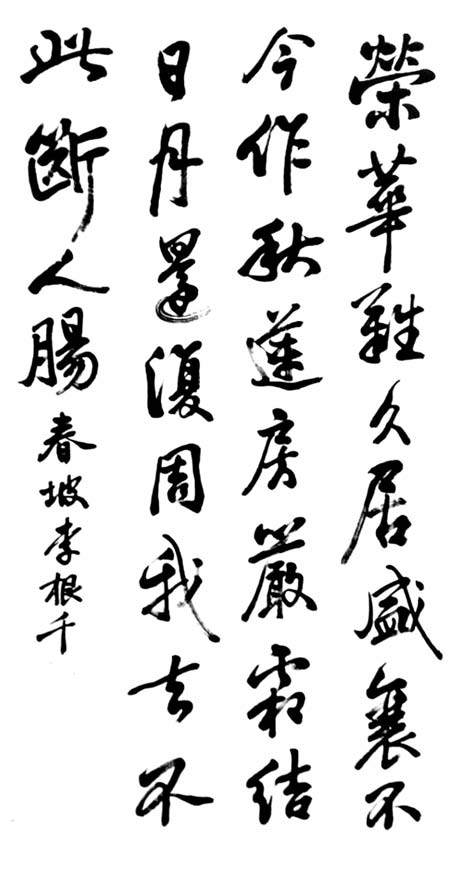 榮華難久居盛衰不
今作秋蓮房嚴霜結
日月還復周我去不
此斷人腸
春坡李根千